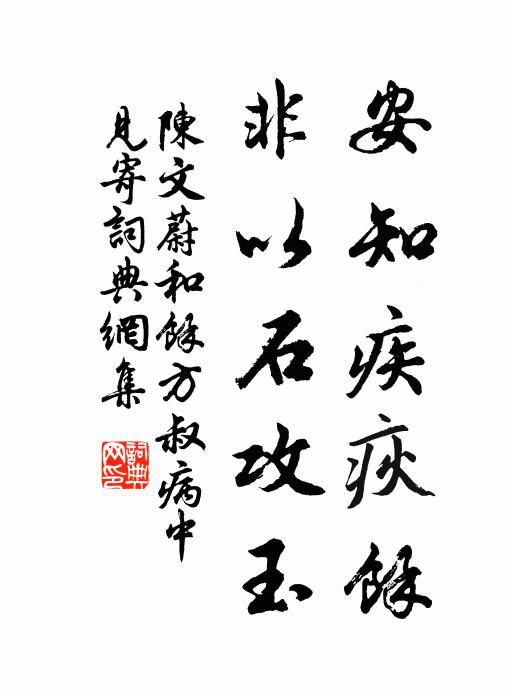 安知疾疢餘
非以石攻玉
陳文蔚和餘方叔病中
見寄詞典網集
詞典
网印